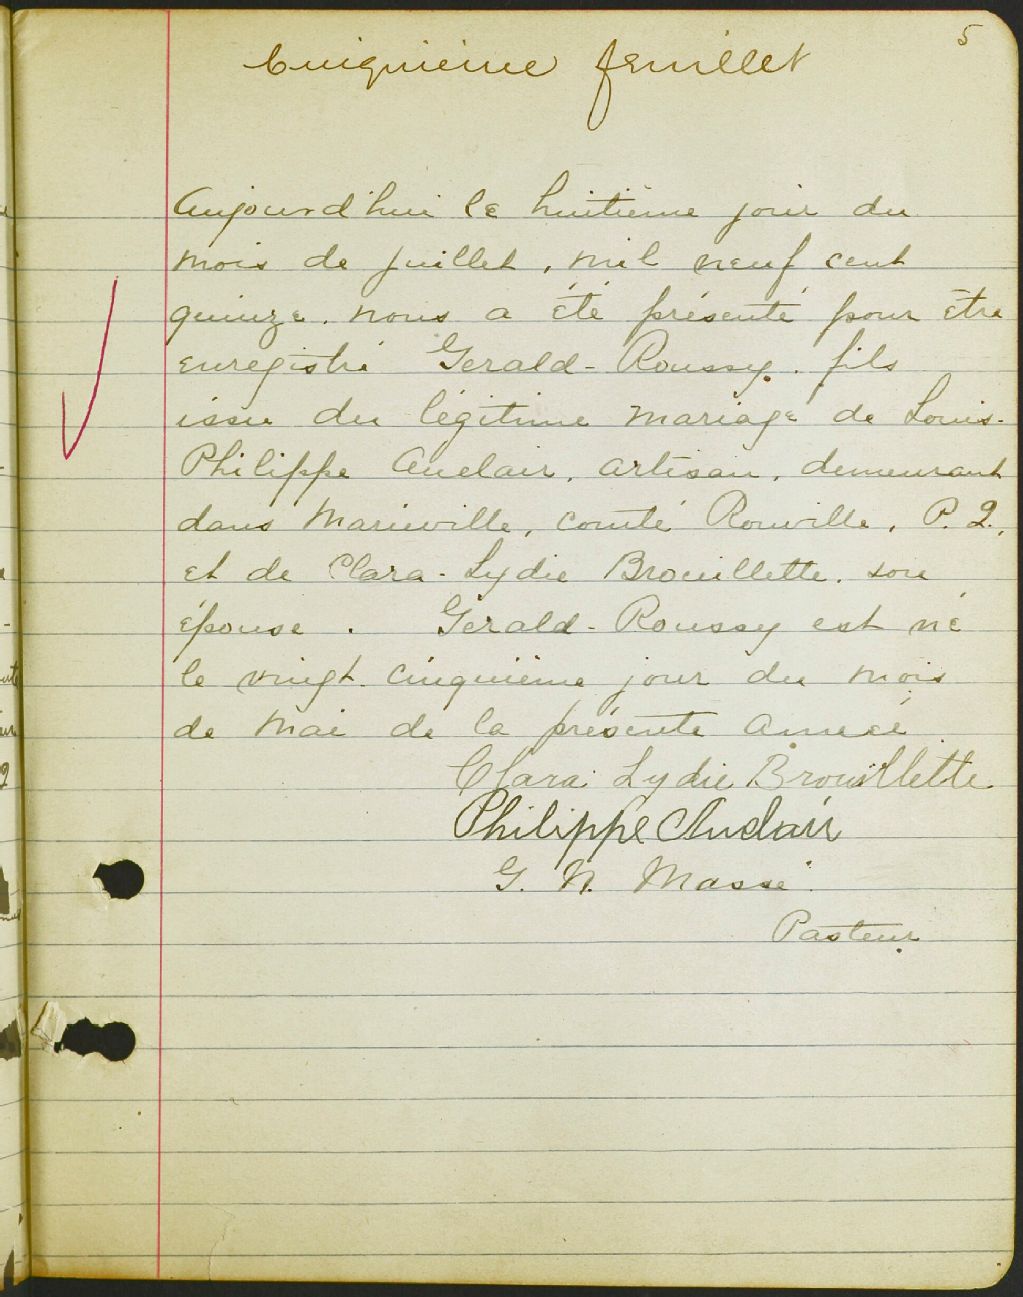 5
Cinquième feuillet
Aujourd'hui le huitième jour du
mois de juillet, mil neuf cent
quinze. nous a été présenté pour être
enregistré Gerald-Roussy. fils
issu du légitime mariage de Louis-
Philippe Auclair, artisan, demeurant
dans Marieville, comté Rouville, P. Q.,
et de Clara-Lydie Brouillette, son
épouse. Gérald-Roussy est né
le vingt-cinquième jour du mois
de Mai de la présente année.
Clara Lydie Brouillette
Philippe Auclair
G. N. Massé
Pasteur